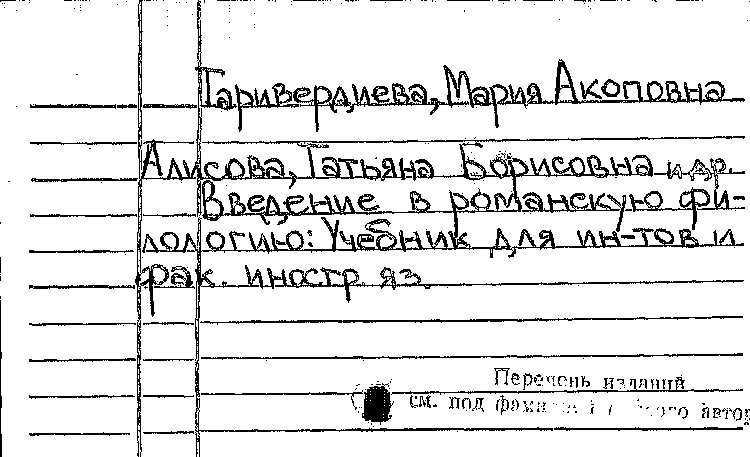 Таривердиева, Мария Акоповна
Алисова, Татьяна Борисовна и др.
Введение в романскую фи-
лологию: Учебник для ин-тов и
фак. иностр яз.
Перечень изданий
см. под автор